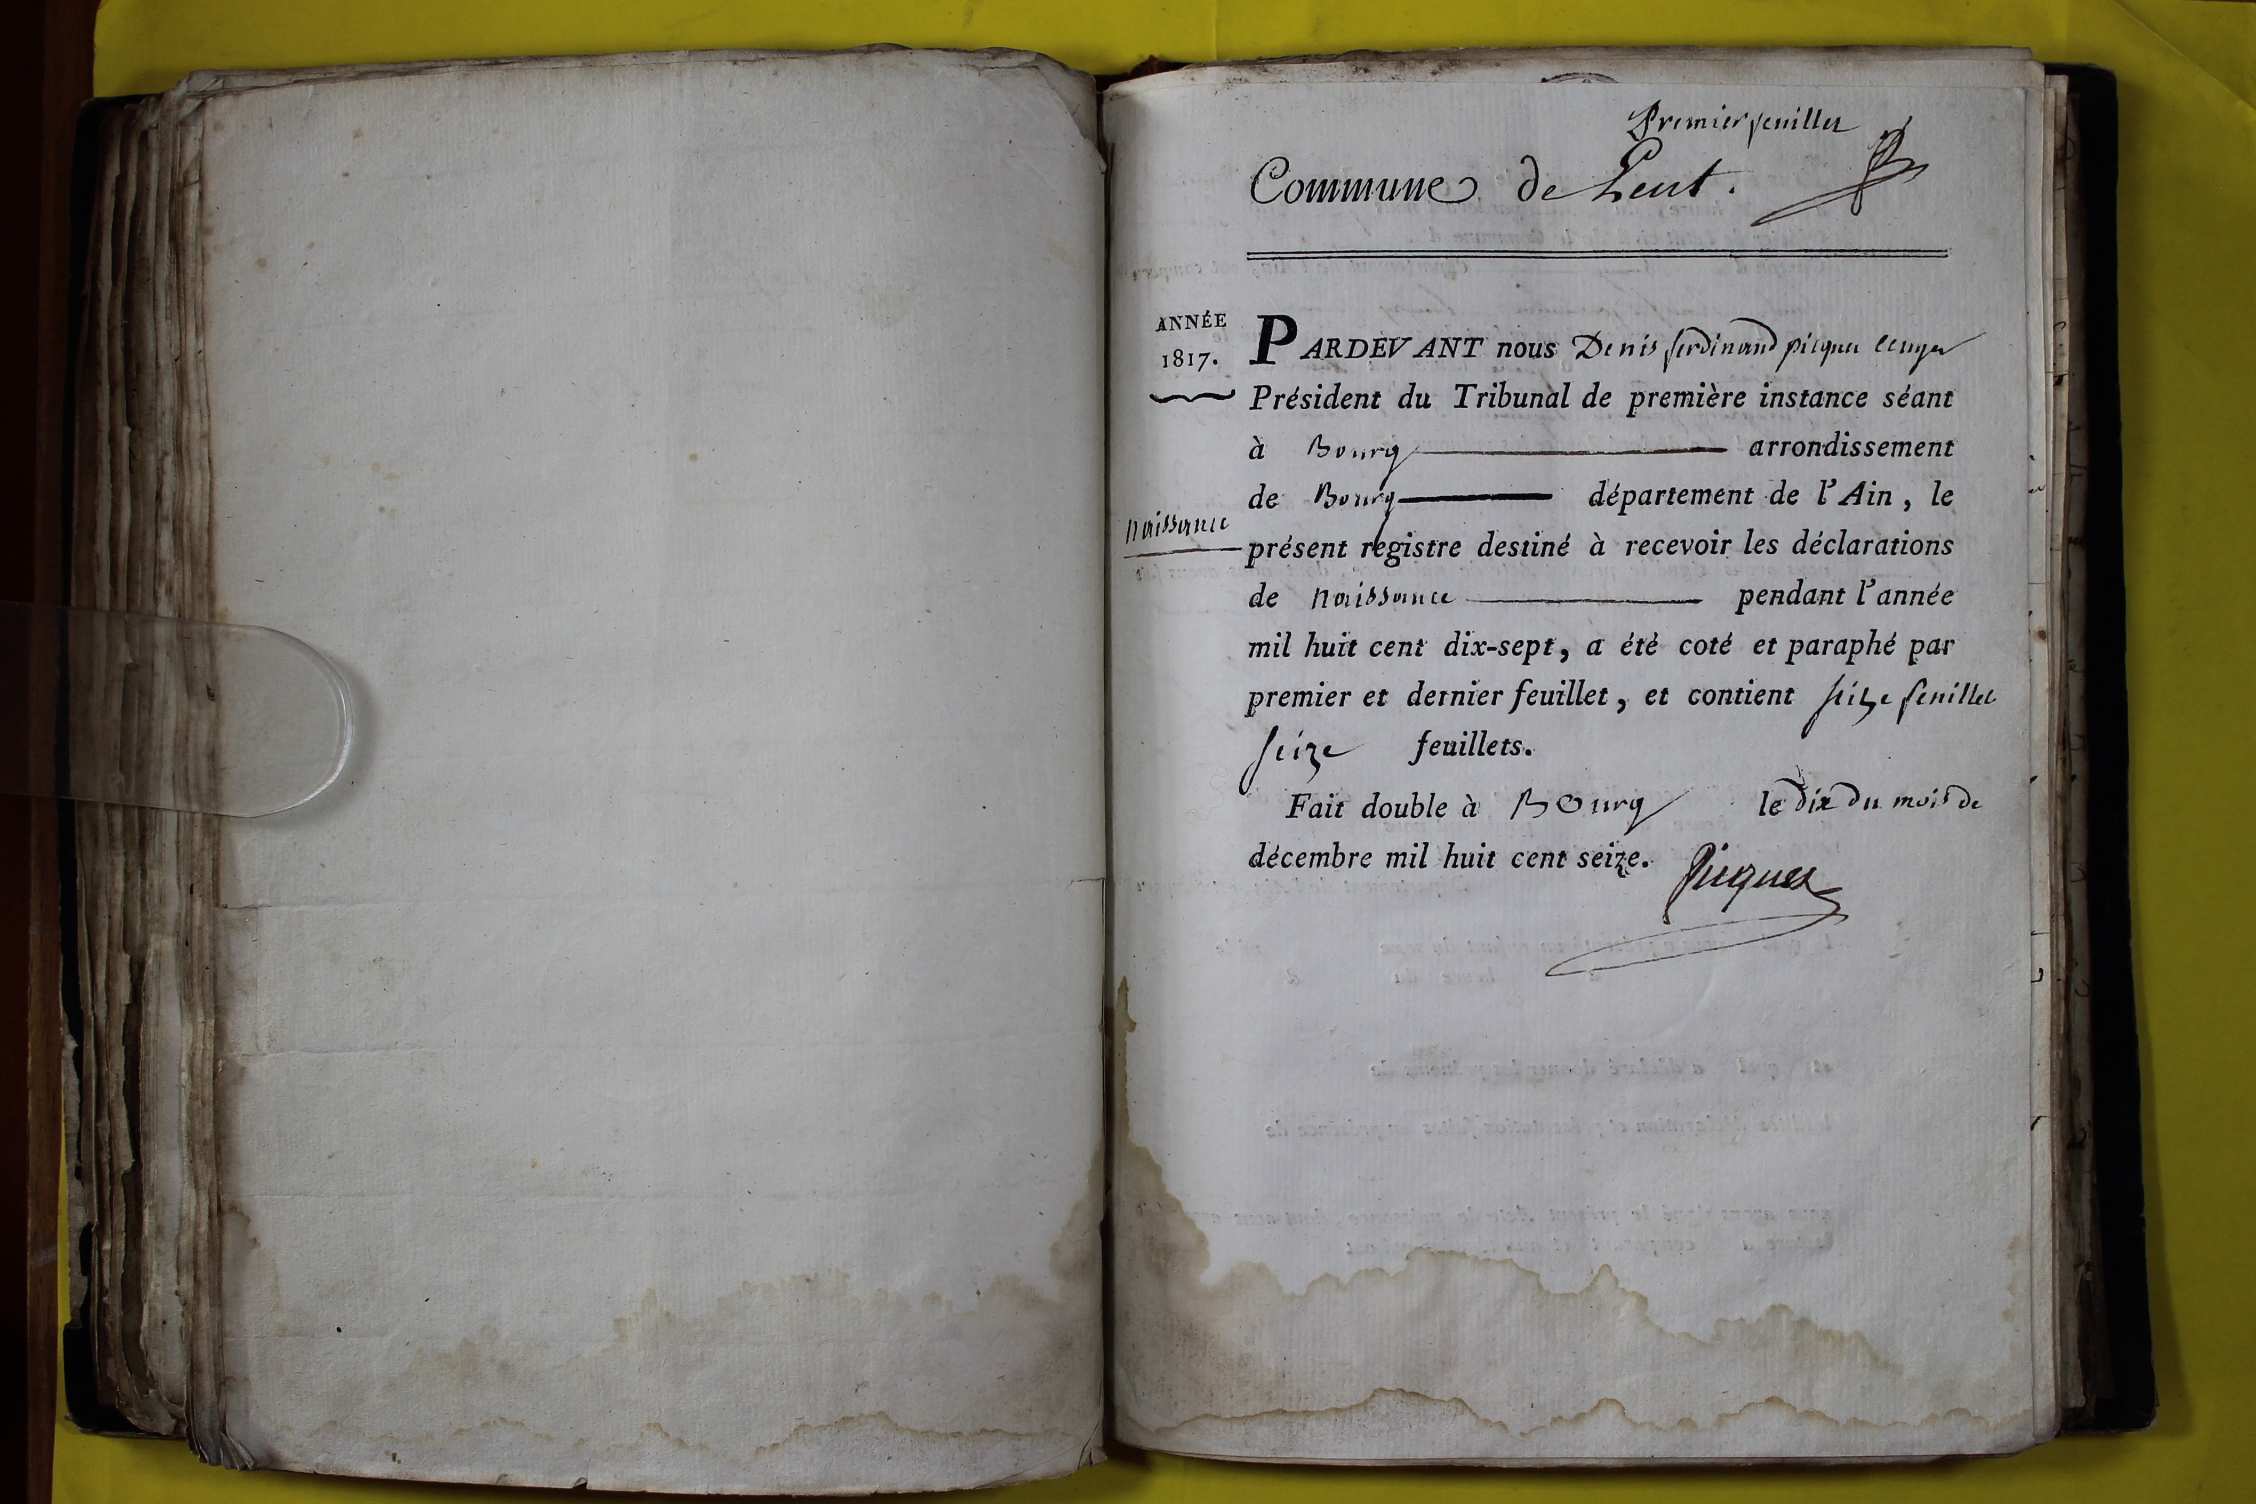 Premier feuillet
Commune de Lent.
ANNÉE
1817.
PARDEVANT nous Denis ferdinand picquet ecuyer
Président du Tribunal de première instance séant
à Bourg arrondissement
de Bourg département de l'Ain, le
naissance
présent registre destiné à recevoir les déclarations
de naissance pendant l'année
mil huit cent dix-sept, a été coté et paraphé par
premier et dernier feuillet, et contient seize feuillet
seize feuillets.
Fait double à Bourg le dix du mois de
décembre mil huit cent seize.
Picquet